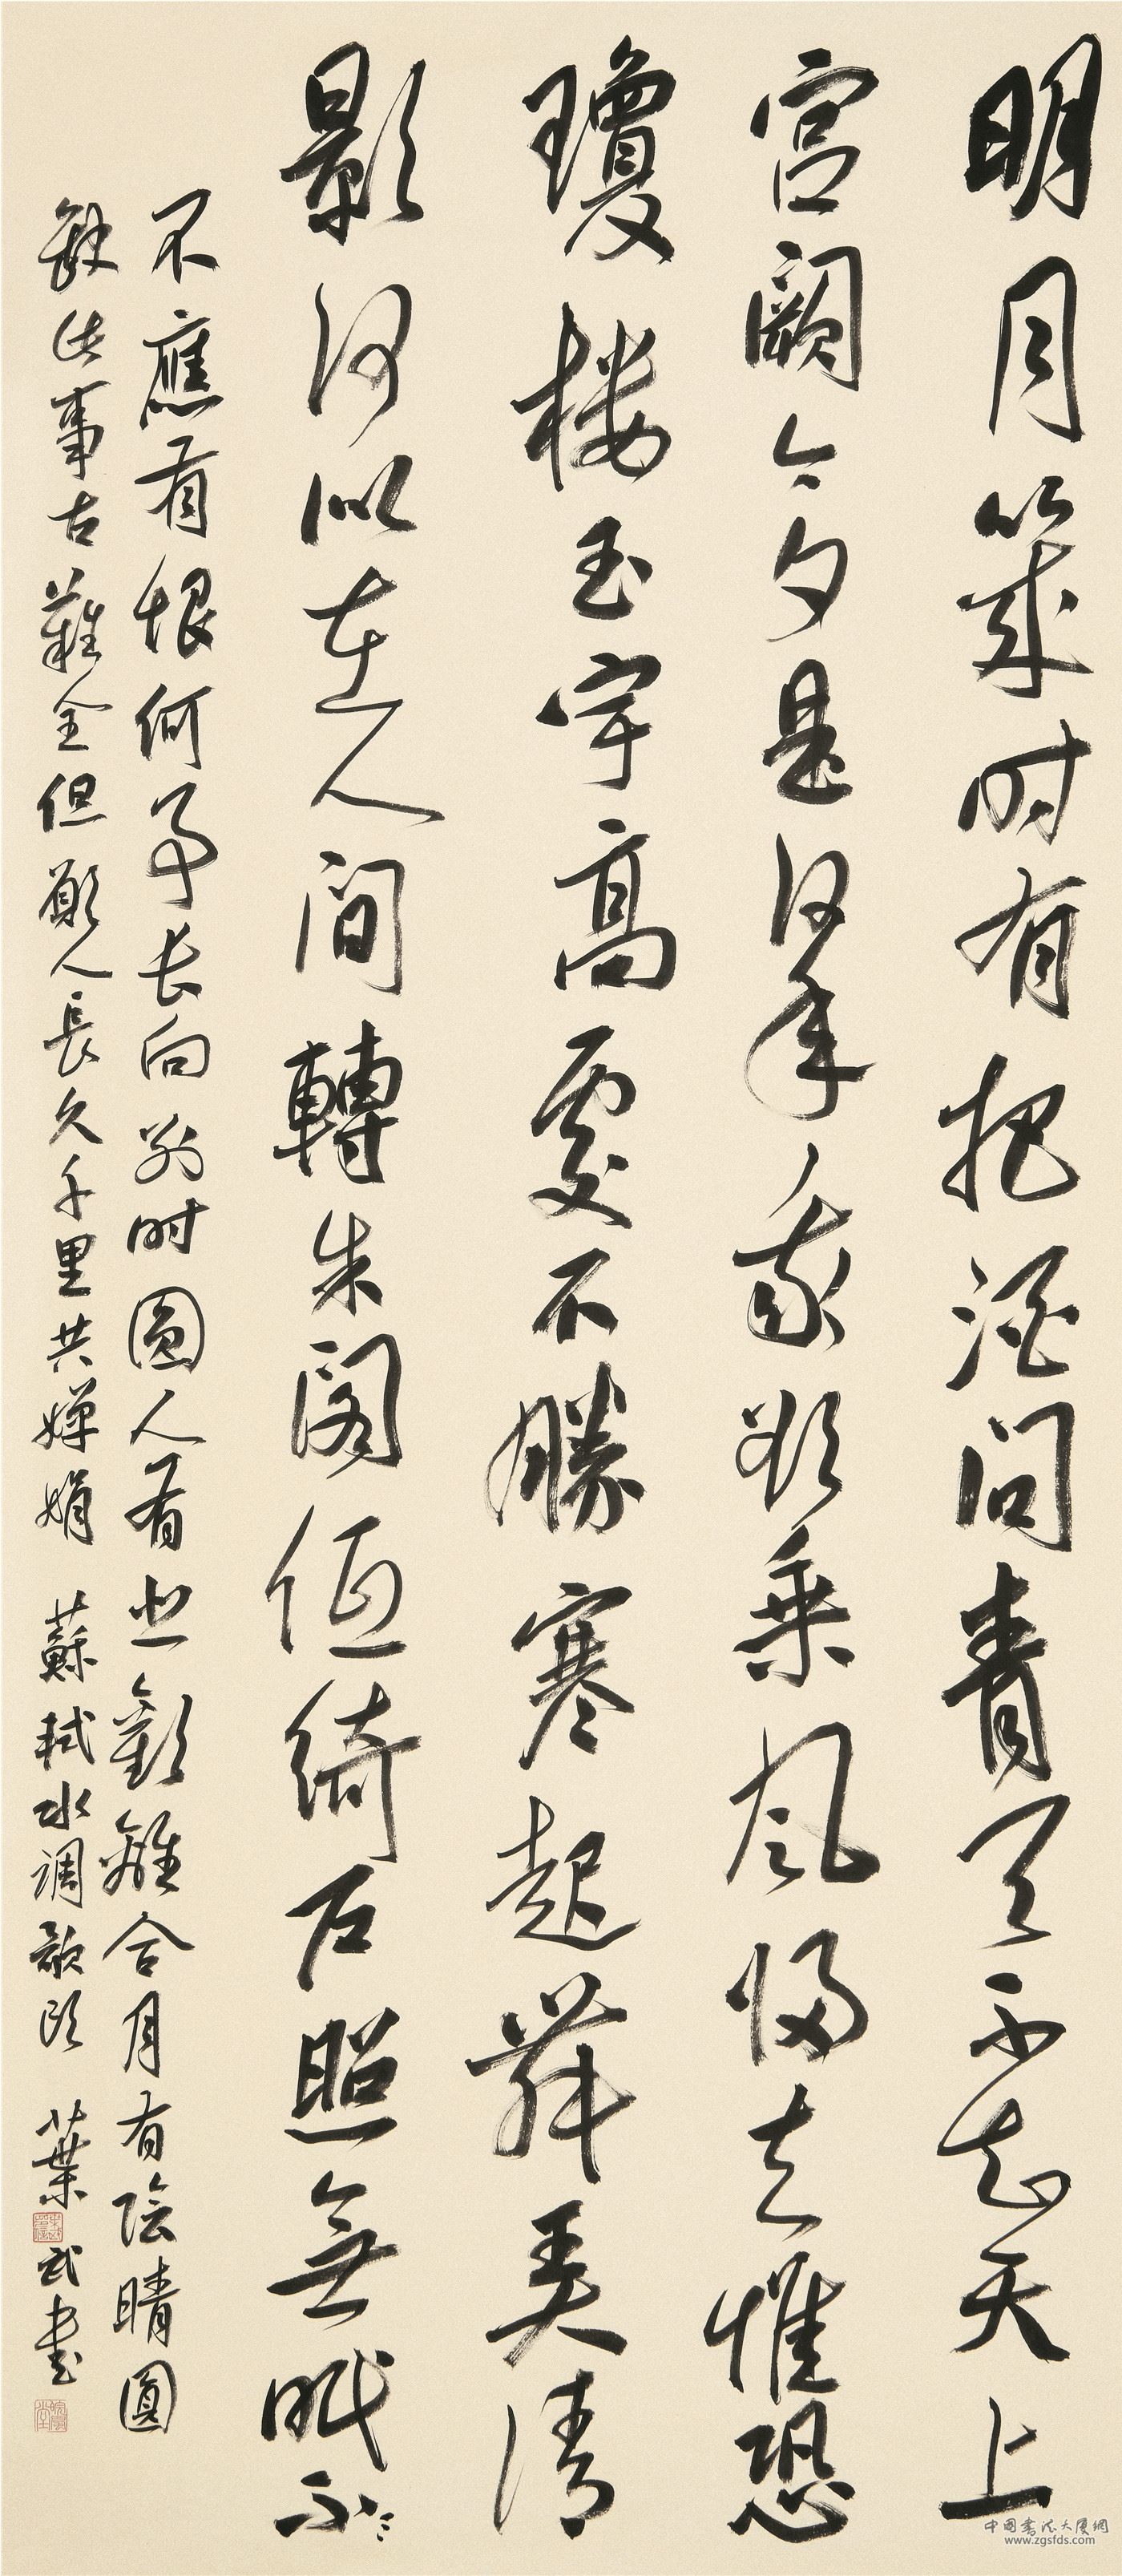 明月幾时有把酒问青天不知天上
宫阙今夕是何年我欲乘风归去惟恐
瓊楼玉宇高處不勝寒起舞弄清
影何似在人间轉朱阁低綺户照無眠不
不應有恨何事长向别时圆人有悲歡離合月有陰晴圓
缺此事古難全但願人長久千里共嬋娟 蘇軾水调歌头 葉武書
中国书法大厦网
www.zgsfds.com